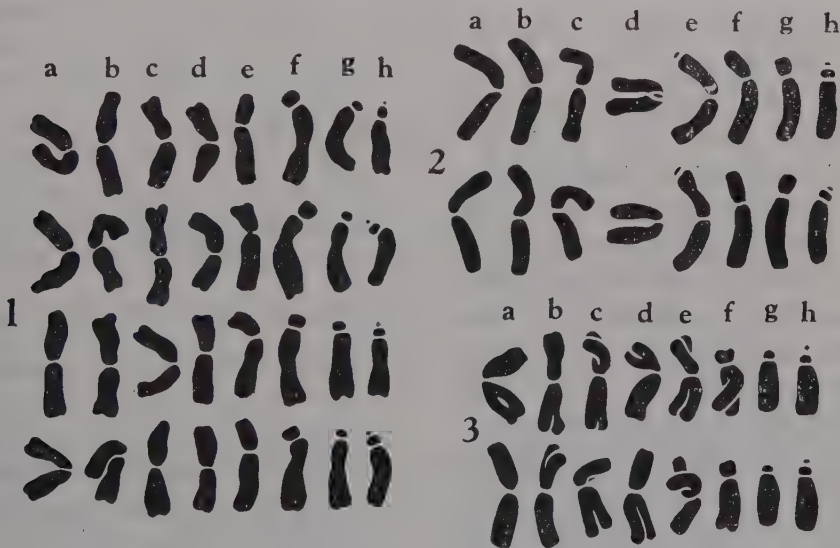 a b c d e f g h
1
a b c d e f g h
2
a b c d e f g h
3